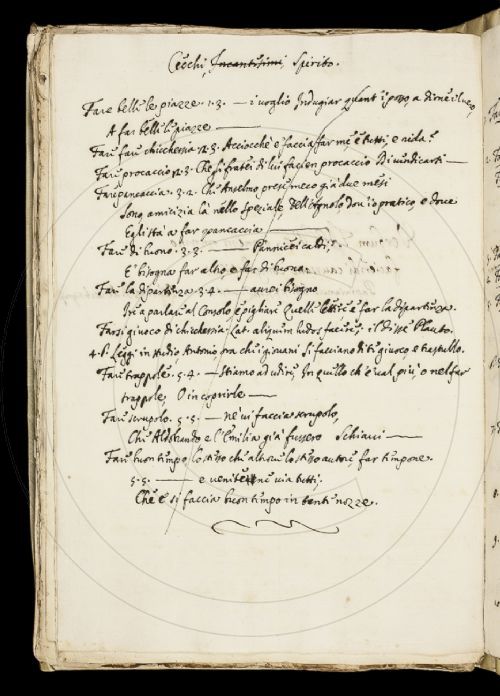 Cecchi, Incantesimi, Spirito.
Fare belle le piazze. 1.3. — i voglio Indugiar quant'i posso a dirne il vero
A far belle le piazze —
Fare fare chicchessia. 3. Acciocchè e' facci a far me e tutti, e
Fare procaccio. 3. Che si fratel di lui facien procaccio Di vendicarsi —
Fare pancaccia. 3.2. Che Anselmo prese meco già due mesi
Sono amicizia là nello Speziale Dell'Agnolo dov'io pratico, e dove
Egli stà a far pancaccia —
Fare di buono. 3.3. — Pannicei caldi;
E' bisogna far altro e far di buono.
Fare la dipartenza 3.4. — aurei bisogno
Ire a parlare al Console e pigliare Quelle lettere e far la dipartenza.
Farsi giuoco di chicchessia; Lat. aliquem ludos facere. il disse Plauto.
4.P. Leggi in studio Antonio fra che i giovani Si facciano di te giuoco e trastullo.
Fare trappole. 5.4. — Stiamo ad udire, In quello ch'e' val più, o nel far
trappole, O in coprirle —
Fare scrupolo. 5.5. — ne vi faccia scrupolo,
Che Aldobrando e l'Emilia già fussero Schiavi —
Fare buon tempo, lo stesso che altrove lo stesso autore far tempone.
5.5. — e venitevene via tutti;
Che e' si faccia buon tempo in tante nozze.